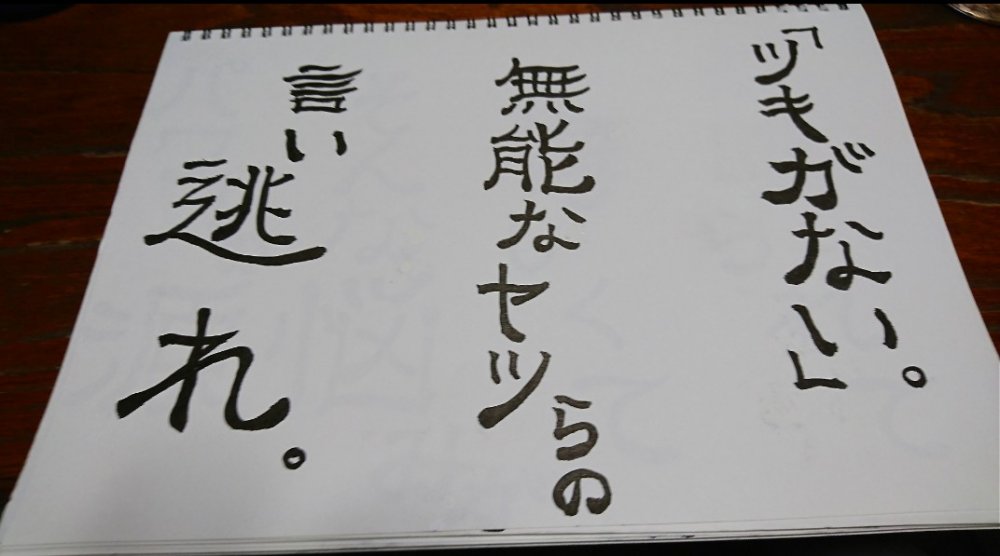 「ツキガない。」
無能なヤツらの
言い逃れ。